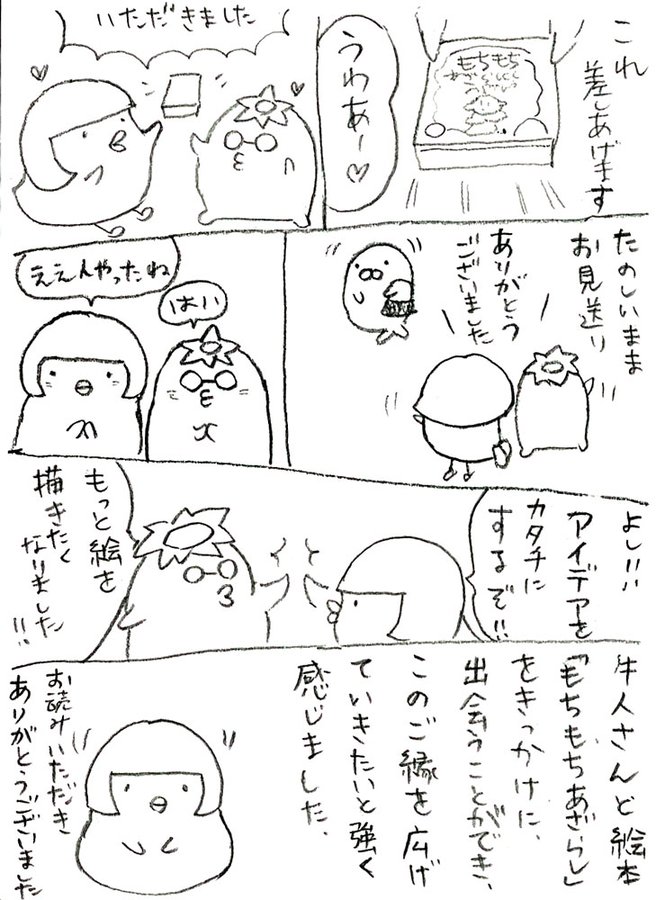 これ
差しあげます
もちもち
うわあー♡
いただきました
たのしいまま
お見送り
ありがとう
ございました
はい
ええんやったね
よし!!!
アイデアを
カタチに
するぞ!!
もっと絵を
描きたく
なりました
!!!
牛人さんと絵本
「もちもちあざらし」
をきっかけに、
出会うことができ、
このご縁を広げ
ていきたいと強く
感じました、
お読みいただき
ありがとうございました